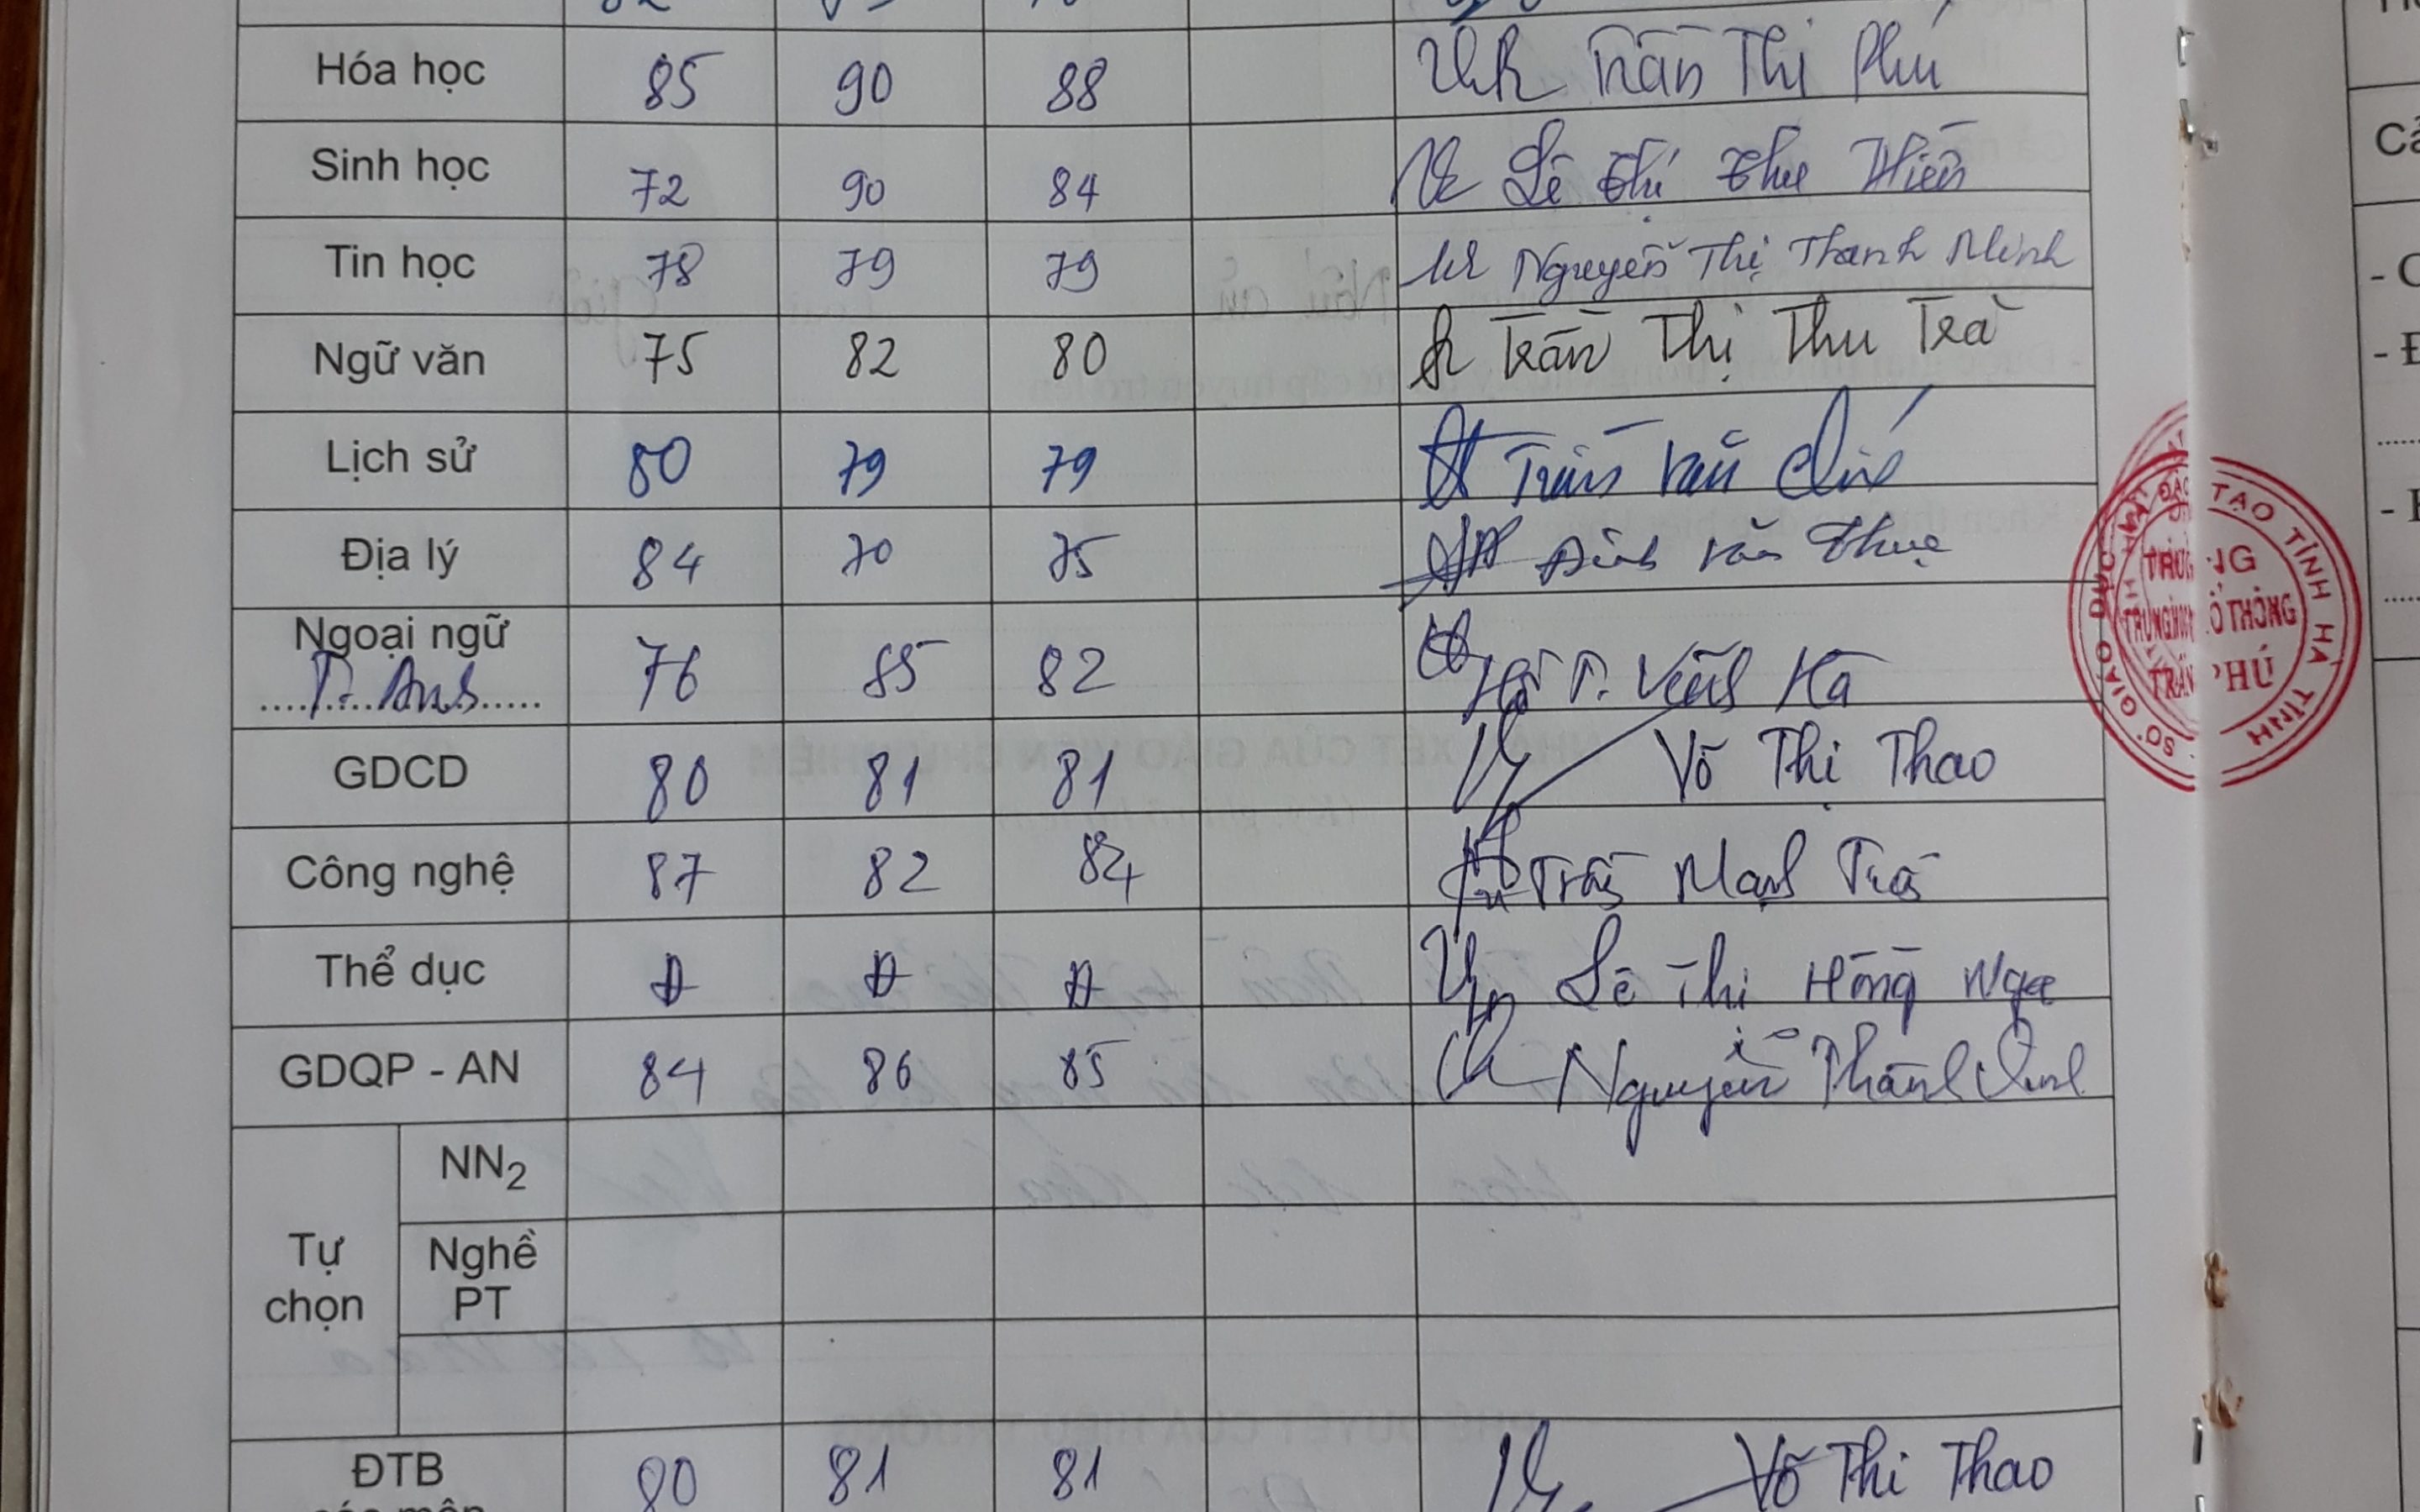 Hóa học 85 90 88 Trần Thị Phú
Sinh học 72 90 84 Lê Thị Thu Hiền
Tin học 78 79 79 Nguyễn Thị Thanh Minh
Ngữ văn 75 82 80 Trần Thị Thu Trà
Lịch sử 80 79 79 Trần Văn
Địa lý 84 70 75 Đinh Văn
Ngoại ngữ
T. Anh 76 85 82 Hồ T. Việt Hà
GDCD 80 81 81 Võ Thị Thao
Công nghệ 87 82 84 Trần Mạnh
Thể dục Đ Đ Đ Lê Thị Hồng Nga
GDQP - AN 84 86 85 Nguyễn Thành
Tự
chọn
NN2
Nghề
PT
ĐTB 80 81 81 Võ Thị Thao
SỞ GIÁO DỤC VÀ ĐÀO TẠO TỈNH HÀ TĨNH
TRƯỜNG
TRUNG HỌC PHỔ THÔNG
TRẦN PHÚ